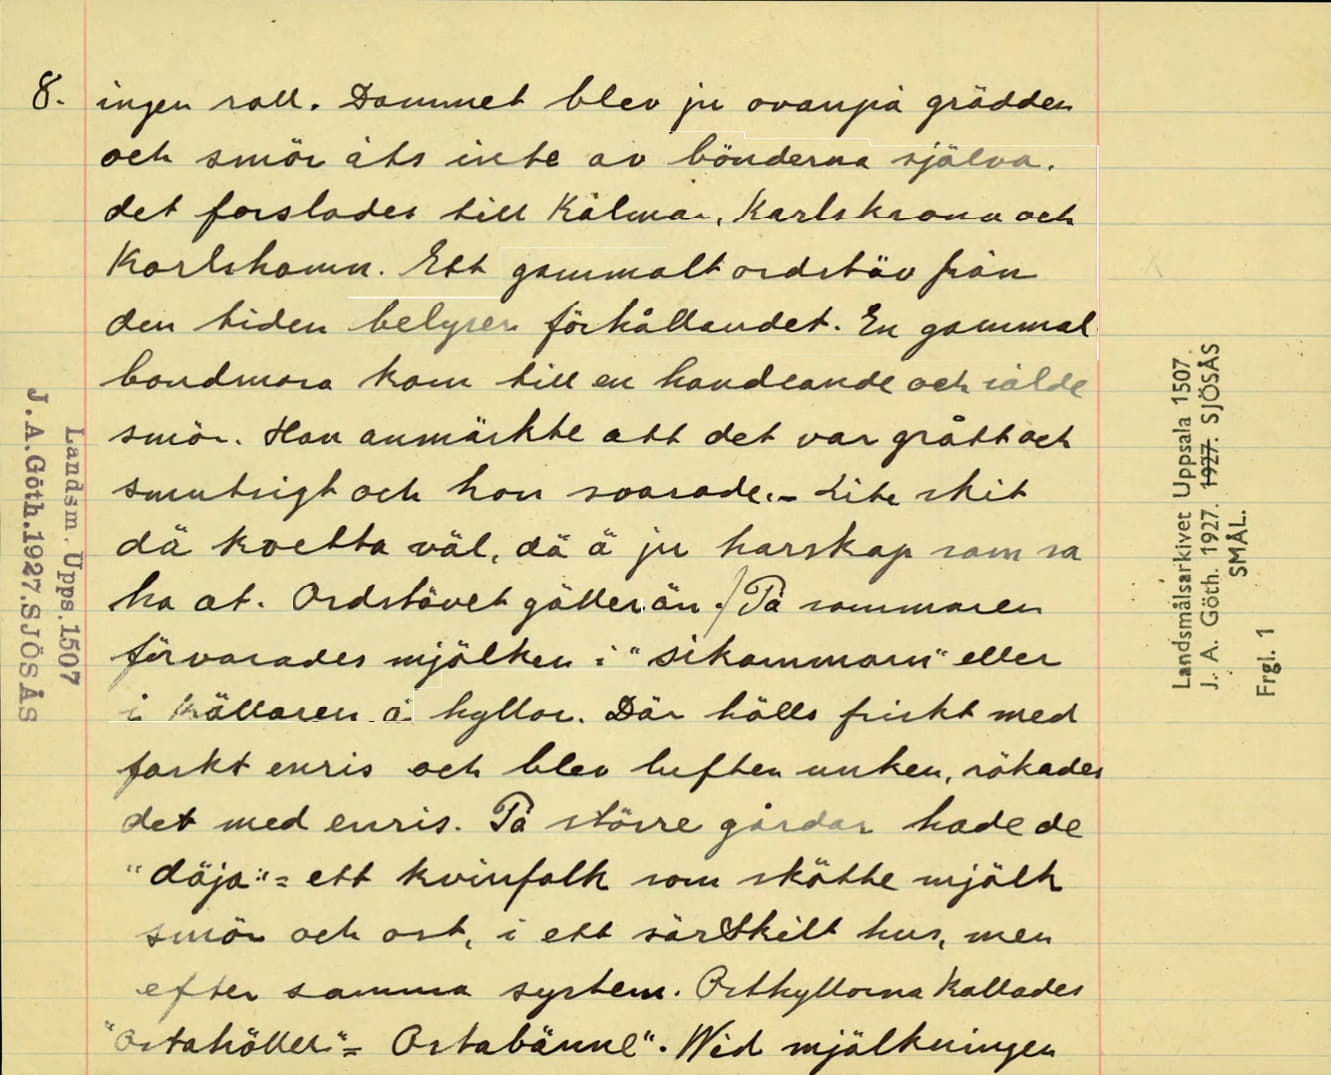 8. ingen roll. Dammet blev ju ovanpå grädden
och smör åts inte av bönderna själva.
det forslades till Kalmar, Karlskrona och
Karlshamn. Ett gammalt ordstäv från
den tiden belyser förhållandet. En gammal
bondmora kom till en handlande och sålde
smör. Han anmärkte att det var grått och
smutsigt och hon svarade. - Lite skit
dä kvetta väl, dä ä ju harskap som sa
ha at. Ordstävet gäller än. / På sommaren
förvarades mjölken i "sikammarn" eller
i källaren å hyllor. Där hölls friskt med
färskt enris och blev luften unken, rökades
det med enris. På större gårdar hade de
"döja" = ett kvinfolk som skötte mjölk
smör och ost, i ett särskilt hus, men
efter samma system. Osthyllorna kallades
"Ostahöller" = Ostabänne". Wid mjölkningen
Landsm. Upps. 1507
J.A.Göth. 1927. SJÖSÅS
Landsmålsarkivet Uppsala 1507
J. A. Göth. 1927. 1927. SJÖSÅS
SMÅL.
Frgl. 1